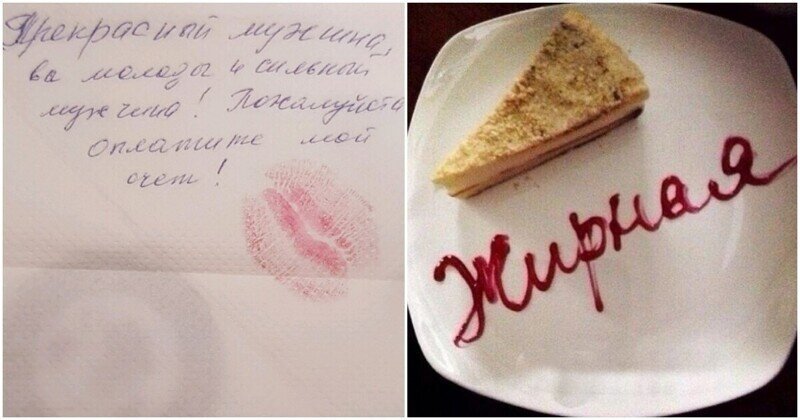 Прекрасный мужчина,
вы молоды и сильной
мужчина! Пожалуйста
оплатите мой
счет!
Жирная